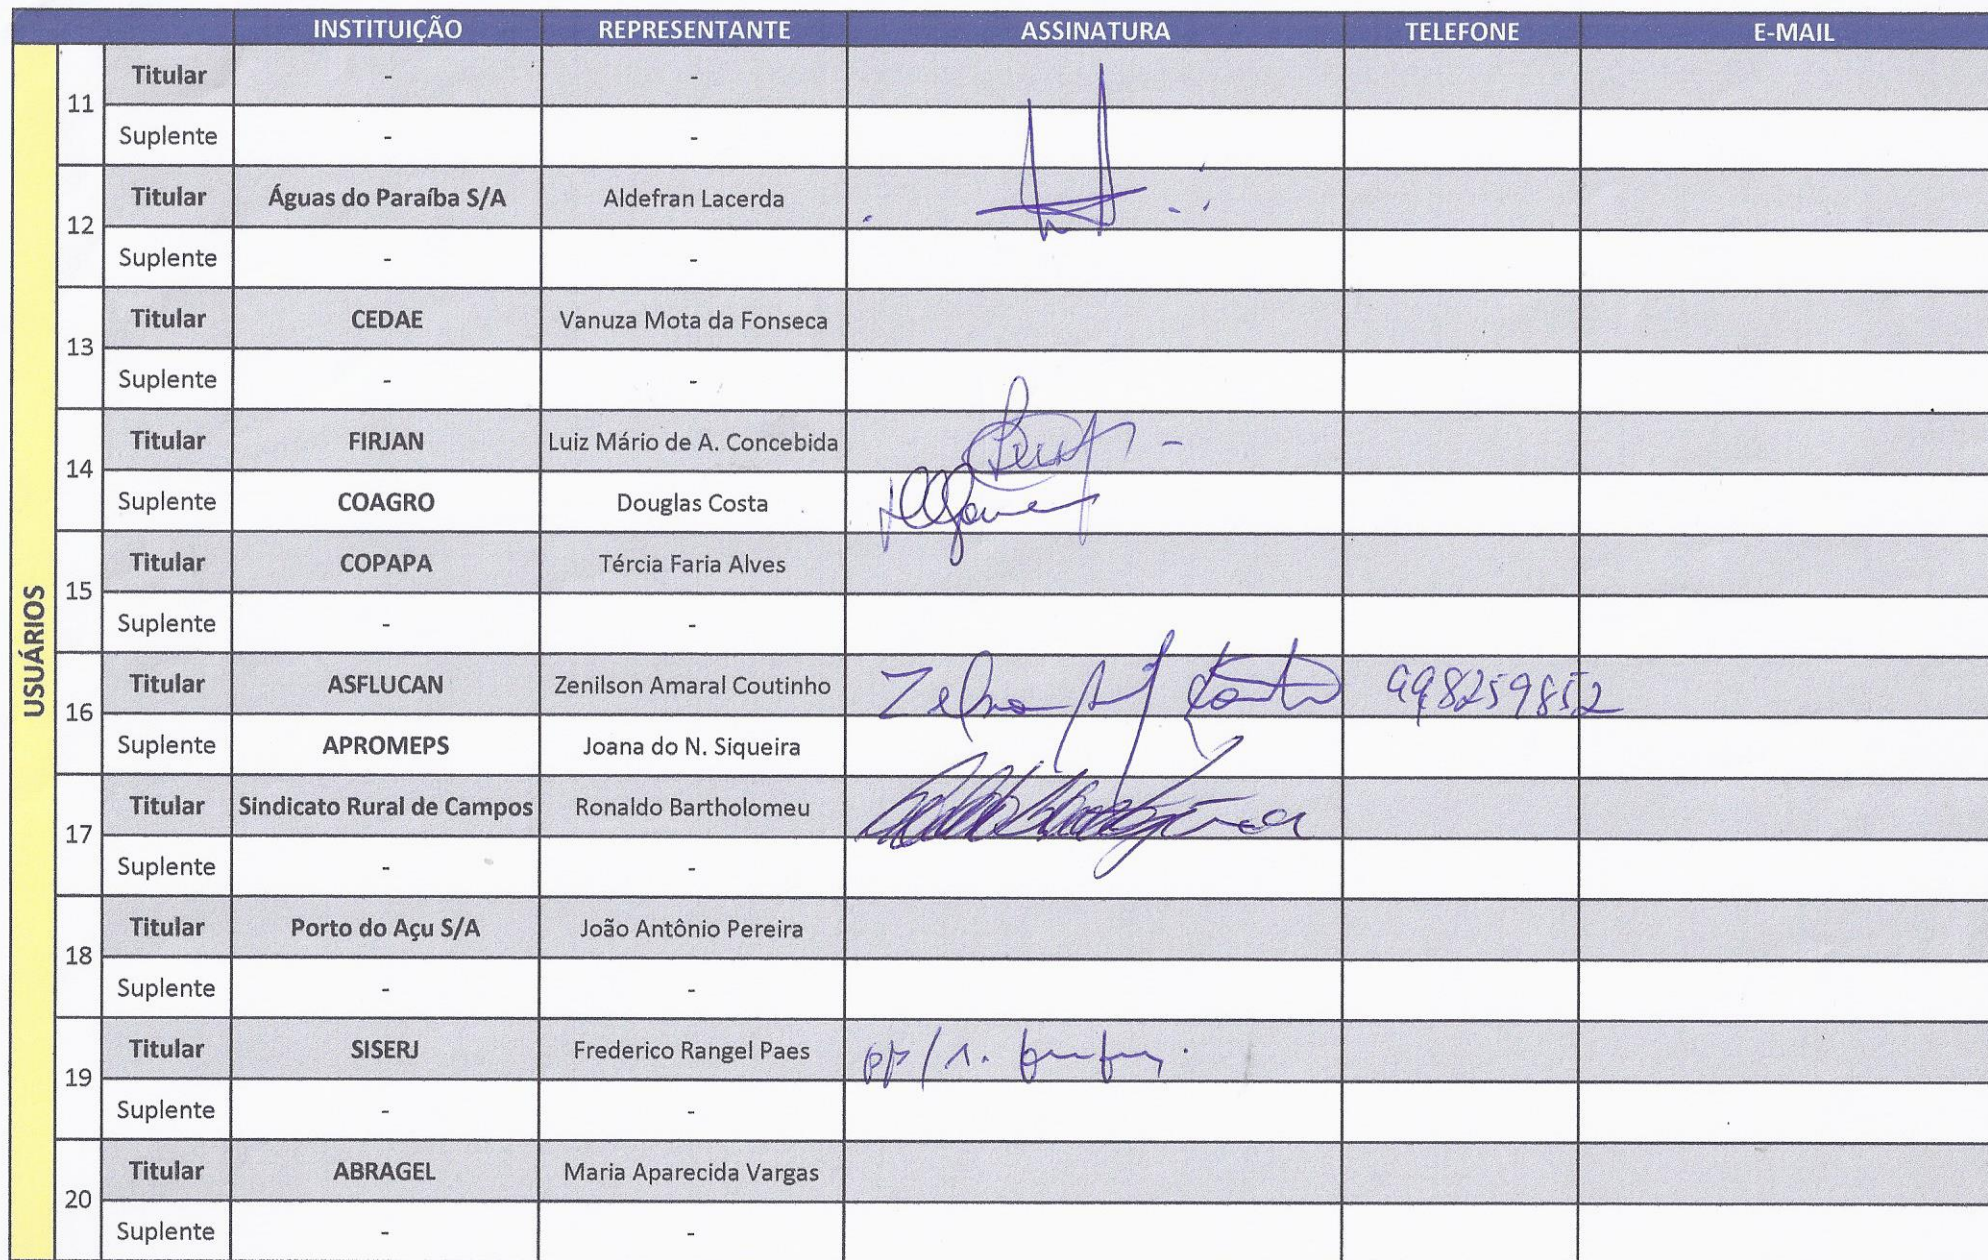 INSTITUIÇÃO REPRESENTANTE ASSINATURA TELEFONE E-MAIL
USUÁRIOS
11 Titular - -
Suplente - -
12 Titular Águas do Paraíba S/A Aldefran Lacerda
Suplente - -
13 Titular CEDAE Vanuza Mota da Fonseca
Suplente - -
14 Titular FIRJAN Luiz Mário de A. Concebida
Suplente COAGRO Douglas Costa
15 Titular COPAPA Tércia Faria Alves
Suplente - -
16 Titular ASFLUCAN Zenilson Amaral Coutinho 998259852
Suplente APROMEPS Joana do N. Siqueira
17 Titular Sindicato Rural de Campos Ronaldo Bartholomeu
Suplente - -
18 Titular Porto do Açu S/A João Antônio Pereira
Suplente - -
19 Titular SISERJ Frederico Rangel Paes
Suplente - -
20 Titular ABRAGEL Maria Aparecida Vargas
Suplente - -